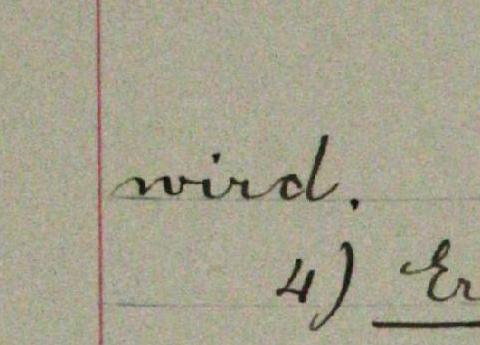 wird.
4) Er